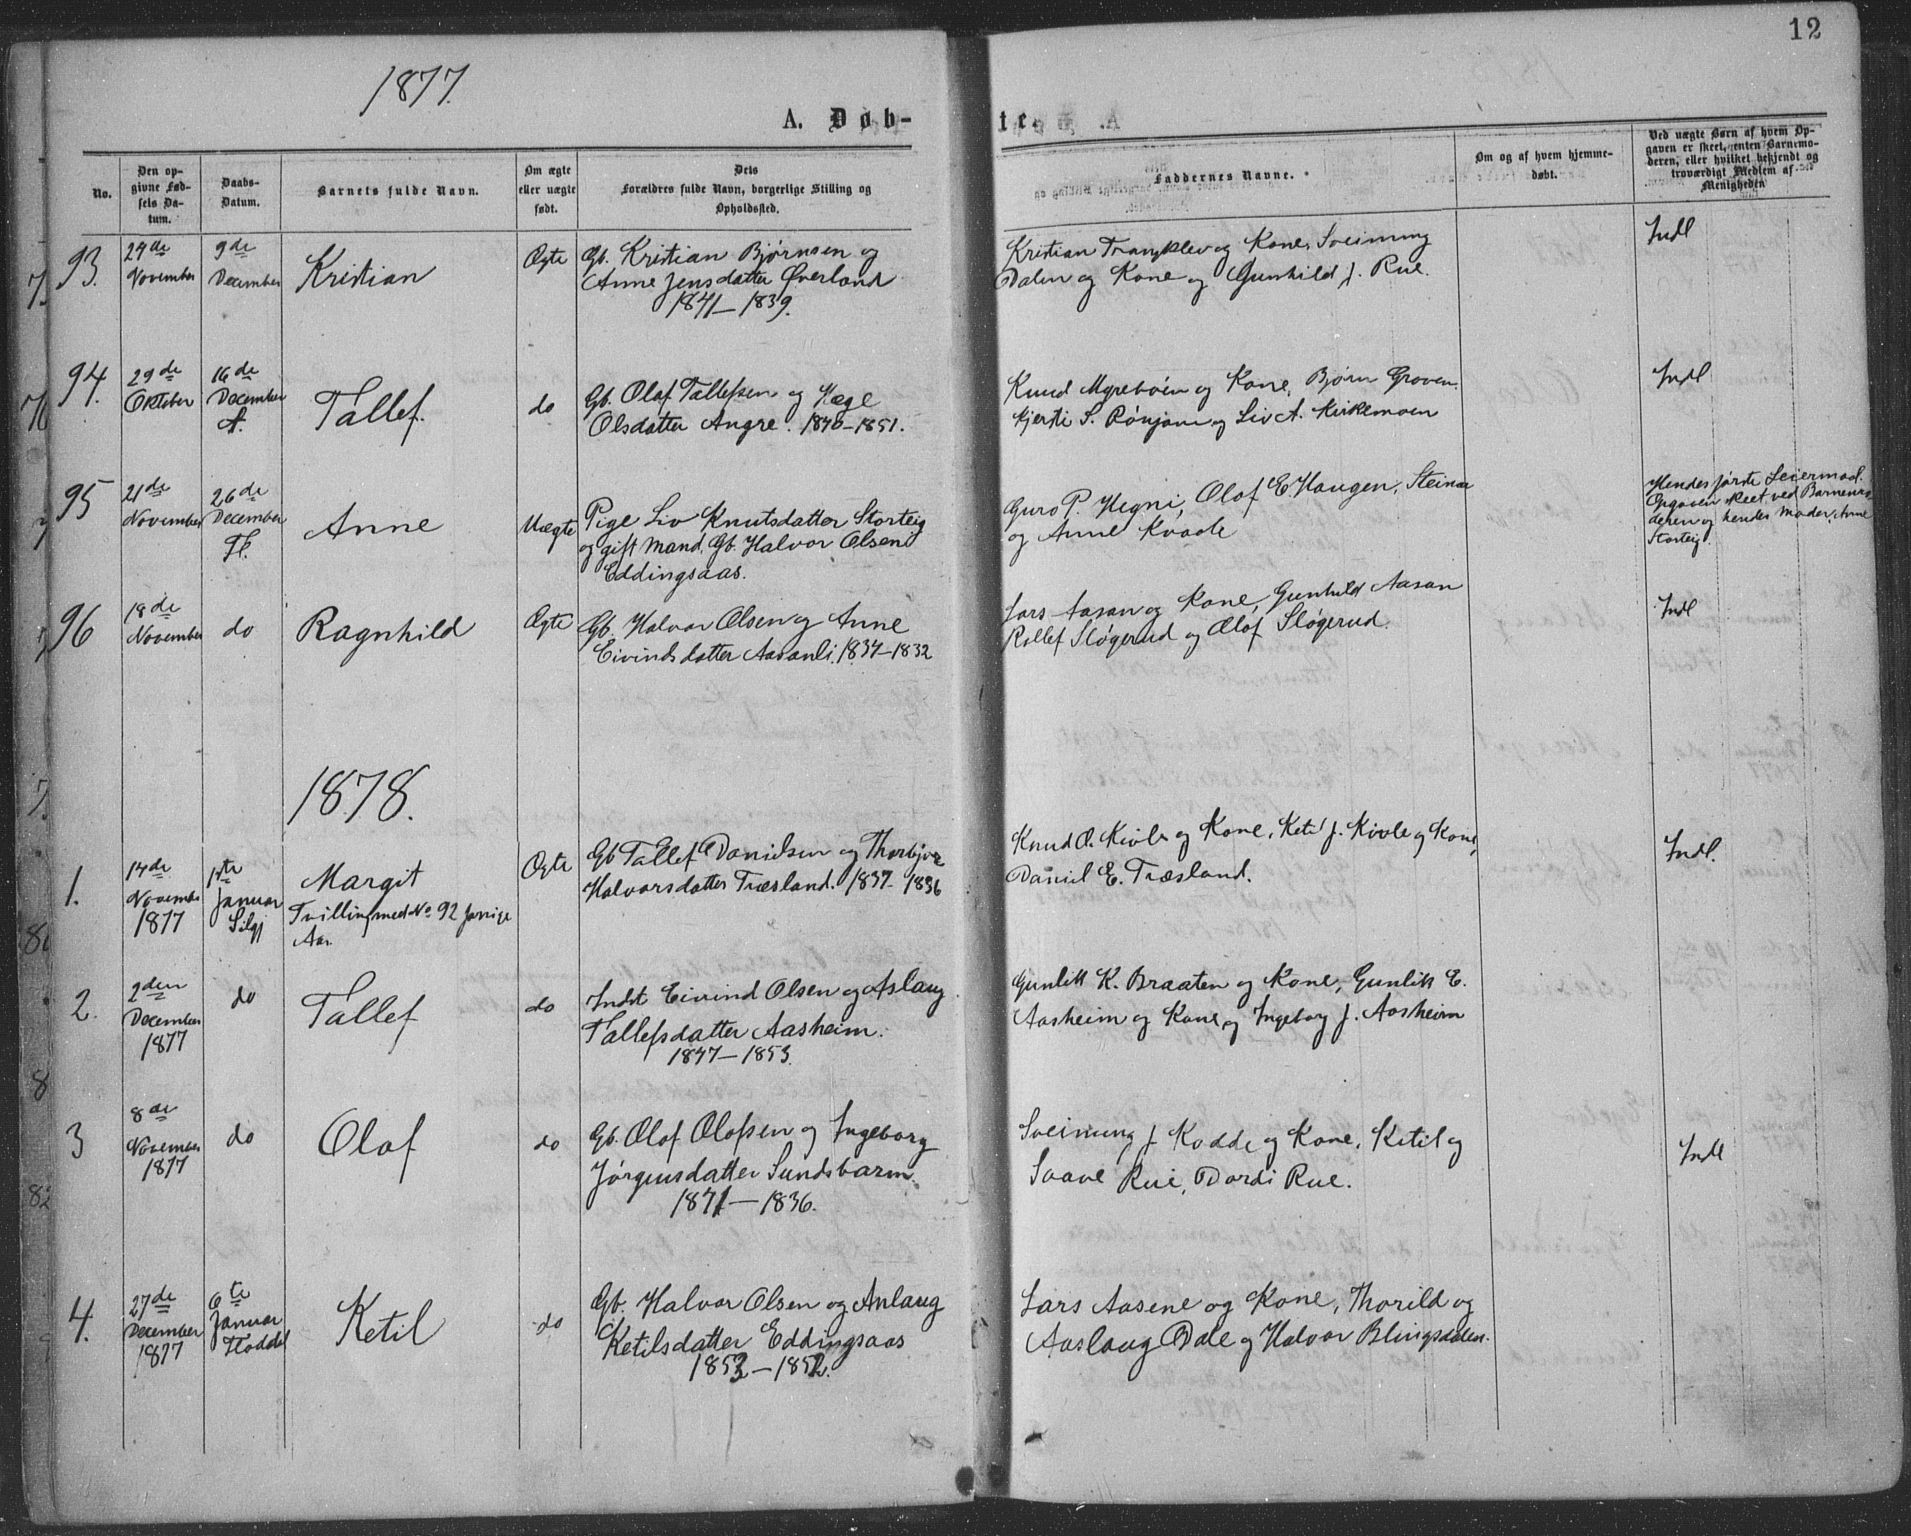 12
1877.
A. Døb-
te.
No.
Den op-
givne Fød-
sels Da-
tum.
Daabs-
Datum.
Barnets fulde Navn.
Om ægte
eller uægte
født.
Dets
Forældres fulde Navn, borgerlige Stilling og
Opholdssted.
Faddernes Navne.
Om og af hvem hjemme-
døbt.
Ved uægte Børn af hvem Op-
gaven er skeet, enten Barnemo-
deren, eller hvilket bekjendt og
troværdigt Medlem af
Menigheden
93.
24de
November
9de
December
Kristian
Ægte
Gb. Kristian Bjørnsen og
Anne Jensdatter Øverland
1841–1839.
Kristian Trangklev og Kone, Sveinung
Dalen og Kone og Gunhild J. Rue.
Indl
94.
29de
Oktober
16de
December
A.
Tallef.
do
Gb. Olaf Tallefsen og Hæge
Olsdatter Angre. 1846–1851.
Knud Myrebøen og Kone, Bjørn Groven
Kjersti S. Rønjom og Liv A. Kirkemoen
Indl
95
21de
November
26de
December
Fl.
Anne
Uægte
Pige Liv Knutsdatter Storteig
og gift Mand, Gb. Halvor Olsen
Eddingsaas.
Guro P. Hegni, Olaf E. Haugen, Steinar
og Anne Kvaale
Hendes første Leiermaal.
Opgaven skeet ved Barnemo-
deren og hendes Moder, Anne
Storteig.
96
18de
November
do
Ragnhild
Ægte
Gb. Halvor Olsen og Anne
Eivindsdatter Aasanli. 1834–1832
Lars Aasan og Kone, Gunhild Aasan
Rollef Sløgerud og Olaf Sløgerud.
Indl
1878.
1.
14de
November
1877
1ste
Januar
Silgj
Margit
Tvilling med No 92 forrige
Aar.
Ægte
Gb Tallef Danielsen og Thorbjør
Halvorsdatter Træsland. 1837–1836
Knud O. Kivle og Kone, Ketil J. Kivle og Kone,
Daniel E. Træsland.
Indl.
2.
2den
December
1877
do
Tallef
do
Indst Eivind Olsen og Aslaug
Tallefsdatter Aasheim.
1847–1853
Gunlik K. Braaten og Kone, Gunlik E.
Aasheim og Kone og Ingeborg J. Aasheim
3
8de
November
1877
do
Olaf
do
Gb. Olaf Olafsen og Ingeborg
Jørgensdatter Sundsbarm.
1841–1836.
Sveinung J. Kodde og Kone, Ketil og
Saave Rui, Dordi Rue.
Indl
4.
27de
December
1877
6te
Januar
Flaadal
Ketil
do
Gb. Halvor Olsen og Anlaug
Ketilsdatter Eddingsaas
1853–1852.
Lars Aasene og Kone, Thorild og
Aaslaug Dale og Halvor Blingsdalen.